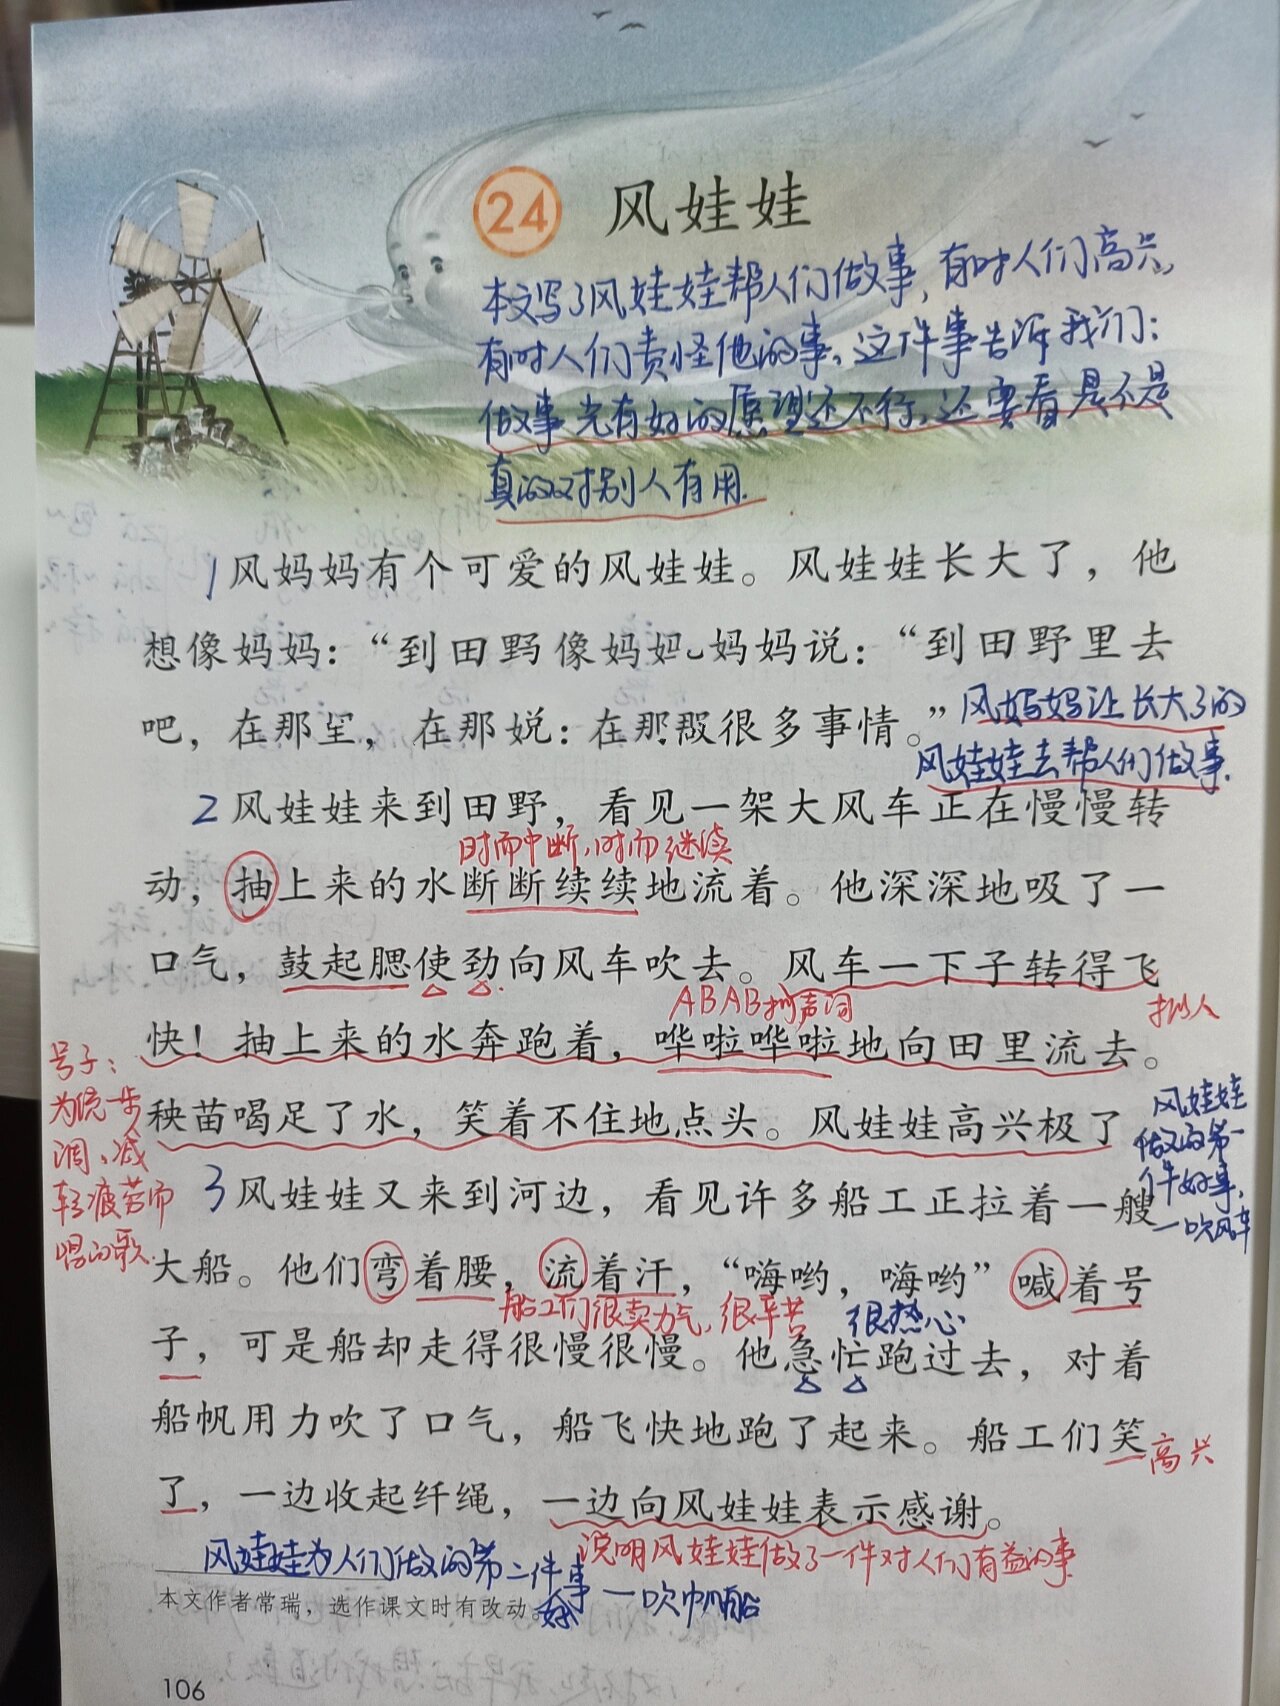 24 风娃娃
本文写了风娃娃帮人们做事，有时人们高兴，
有时人们责怪他的事。这件事告诉我们：
做事光有好的愿望还不行，还要看是不是
真的对别人有用。
1风妈妈有个可爱的风娃娃。风娃娃长大了，他
想像妈妈：“到田野像妈妈 妈妈说：“到田野里去
吧，在那里，在那说：在那 很多事情。”
风妈妈让长大了的
风娃娃去帮人们做事
2风娃娃来到田野，看见一架大风车正在慢慢转
时而中断，时而继续
动，抽上来的水断断续续地流着。他深深地吸了一
口气，鼓起腮使劲向风车吹去。风车一下子转得飞
ABAB拟声词
拟人
快！抽上来的水奔跑着，哗啦哗啦地向田里流去。
号子：
为统一步
调、减
轻疲劳而
唱的歌.
秧苗喝足了水，笑着不住地点头。风娃娃高兴极了
风娃娃
做的第一
件好事，
一吹风车
3风娃娃又来到河边，看见许多船工正拉着一艘
大船。他们弯着腰，流着汗，“嗨哟，嗨哟”喊着号
船工们很卖力气，很辛苦
很热心
子，可是船却走得很慢很慢。他急忙跑过去，对着
船帆用力吹了口气，船飞快地跑了起来。船工们笑
高兴
了，一边收起纤绳，一边向风娃娃表示感谢。
说明风娃娃做了一件对人们有益的事
风娃娃为人们做的第二件好事一吹帆船
本文作者常瑞，选作课文时有改动。
106